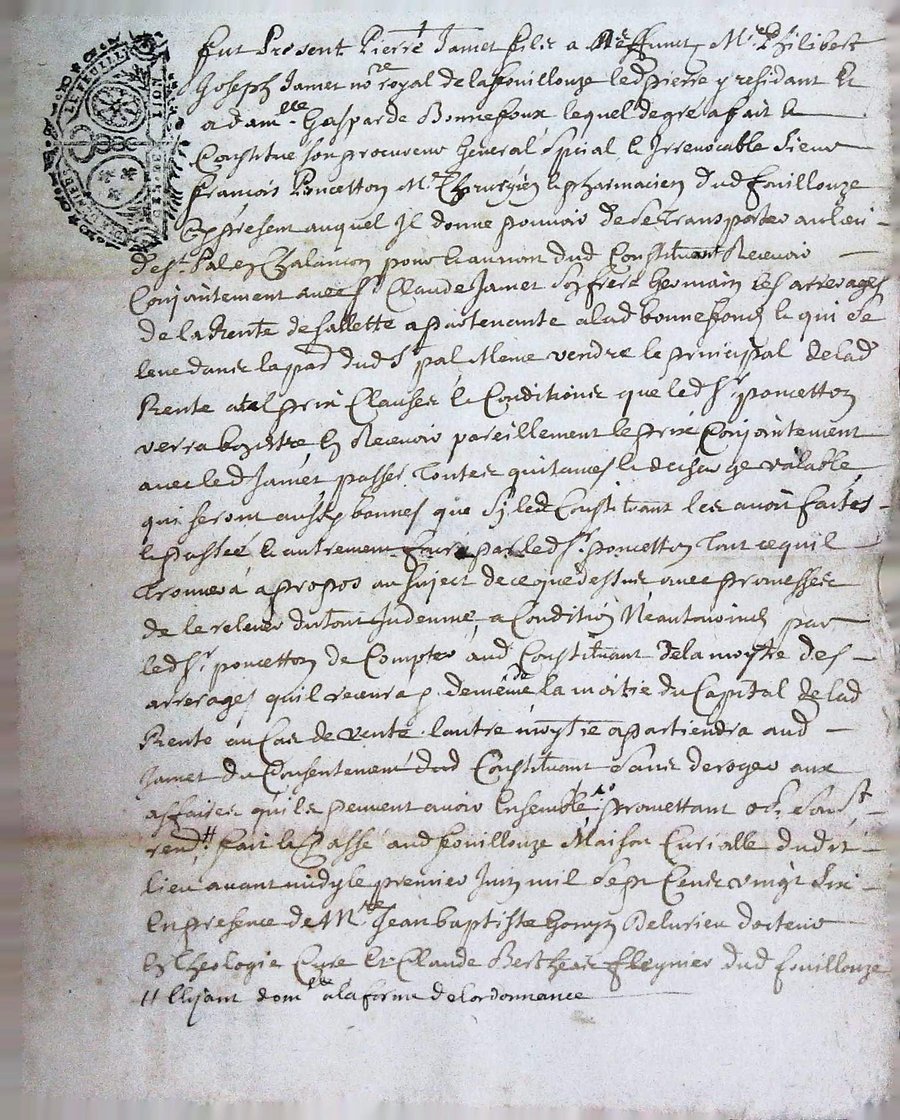 fut Present Pierre Jamet fils a deffunct Mre Philibert
Joseph Jamet nore royal de la fouillouze led pierre y residant Et
a damlle Gasparde Bonnefoux lequel de gre a fait &
Constitue son procureur General spicial & Irrevocable sieur
francois Poncetton Mre Chirurgien & pharmacien dud fouillouze
Cy present auquel Il donne pouvoir de se transporter au lieu
de st Pal en Chalancon pour & au nom dud Constituant Recevoir
Conjointement avec sr Claude Jamet son frere Germain les arrerages
de la Rente de sallette apartenante a lad bonnefoux & qui se
leve dans la par dud st pal Meme vendre le principal de lad
Rente a tel prix Clauses & Conditions que led sr poncetton
verra bon estre En Recevoir pareillement le prix Conjointement
avec led Jamet passer toutes quitances & descharge valable
qui seront aussy bonnes que sy led Constituant les avoit faites
& passée & autrement faire par led sr poncetton tout ce quil
trouvera a propos au suject de ce que dessus avec promesses
de le relever du tout Indemne a Condition Neantmoins par
led sr poncetton de Compter aud Constituant de la moytie des
arrerages quil recevra de meme de la moitie du Capital de lad
Rente au Cas de vente lautre moytie apartiendra aud
Jamet du Consentement dud Constituant sans deroger aux
affaires quils peuvent avoir Ensemble promettant
fait & Passé aud fouillouze Maison Curialle dudit
lieu avant midy le premier Juin mil sept Cens vingt six
En presence de Mre Jean baptiste docteur
En theologie Cure Et Claude dud fouillouze
Elisant domlle a la forme de lordonnance